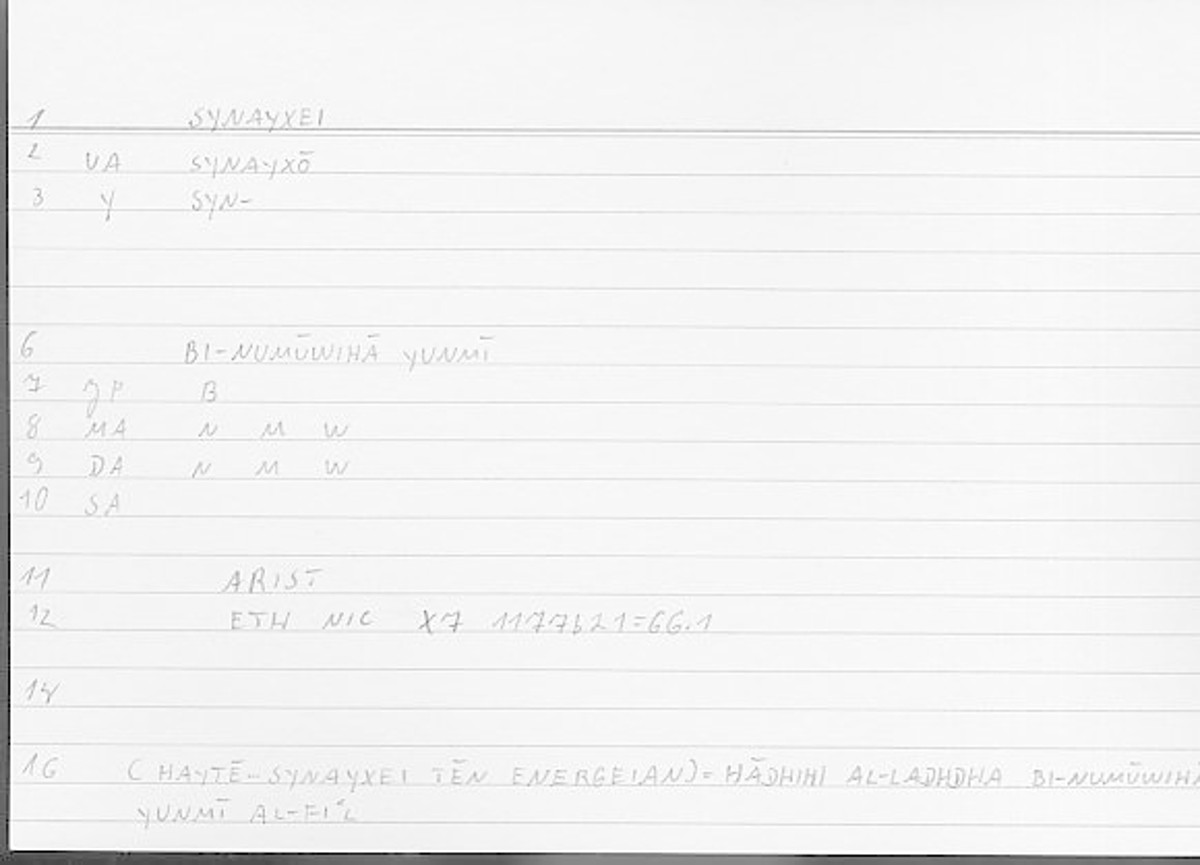 1 SYNAYXEI
2 VA SYNAYXŌ
3 Y SYN-
6 BI-NUMŪWIHĀ YUNMĪ
7 JP B
8 MA N M W
9 DA N M W
10 SA
11 ARIST
12 ETH NIC X7 1177b21=GG.1
14
16 (HAYTĒ-SYNAYXEI TĒN ENERGEIAN)=HĀDHIHI AL-LADHDHA BI-NUMŪWIHĀ
YUNMĪ AL-FIʿL